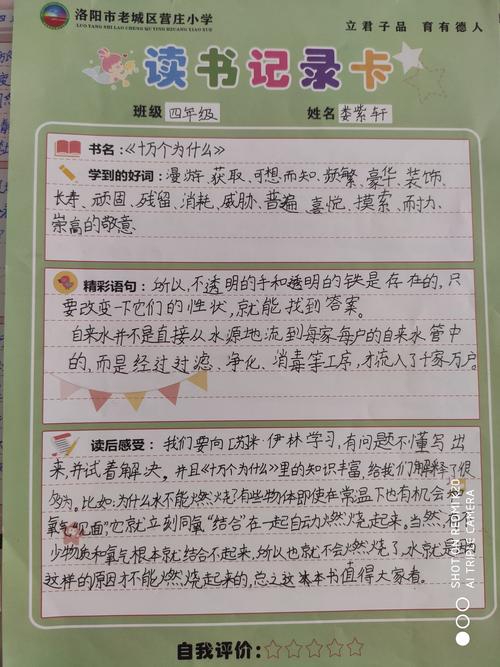 洛阳市老城区营庄小学
LUO YANG SHI LAO CHENG QU YING ZHUANG XIAO XUE
立君子品 育有德人
读书记录卡
班级 四年级 姓名 娄紫轩
书名:《十万个为什么》
学到的好词: 漫游、获取、可想而知、频繁、豪华、装饰、
长寿、顽固、残留、消耗、威胁、普遍、喜悦、摸索、耐力、
崇高的敬意
精彩语句: 所以,不透明的手和透明的铁是存在的,只
要改变一下它们的性状,就能找到答案。
自来水并不是直接从水源地流到每家每户的自来水管中
的,而是经过过滤、净化、消毒等工序,才流入了千家万户。
读后感受: 我们要向 伊林学习,有问题不懂写出
来,并试着解决。并且《十万个为什么》里的知识丰富,给我们解释了很
多为。比如:为什么水不能燃烧?有些物体即使在常温下也有机会
氧气“见面”,它就立刻同氧“结合”在一起自动燃烧起来,当然,
少物质和氧气根本就结合不起来,所以也就不会燃烧了,水就是
这样的原因才不能燃烧起来的,总之这本书值得大家看。
自我评价:☆☆☆☆☆
SHOT ON REDMI K20
AI TRIPLE CAMERA